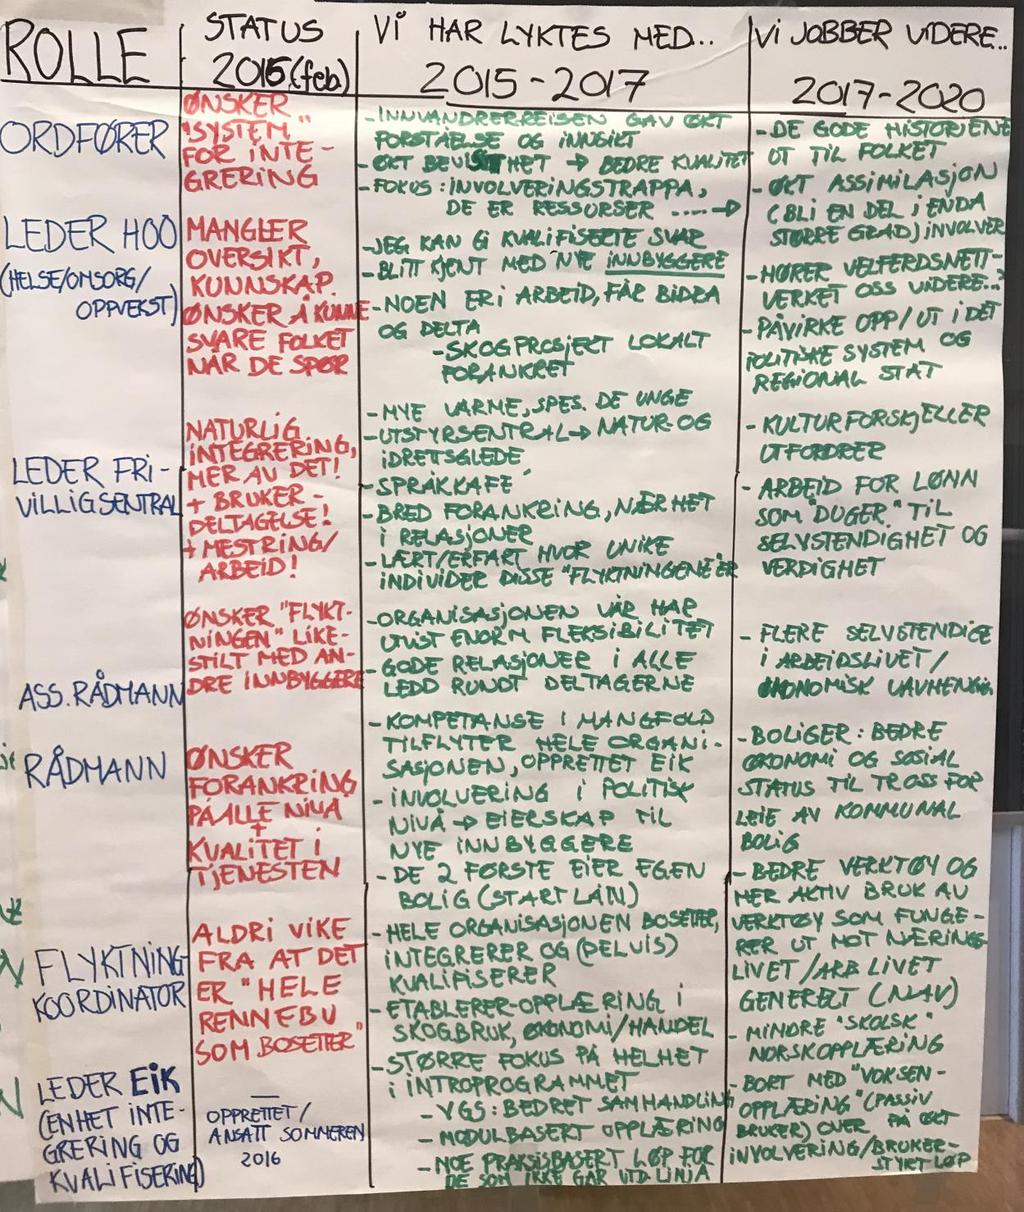 ROLLE
STATUS
2015 (feb)
VI HAR LYKTES MED..
2015-2017
VI JOBBER VIDERE..
2017-2020
ORDFØRER
LEDER HOO
(HELSE/OMSORG/
OPPVEKST)
LEDER FRI-
VILLIGSENTRAL
ASS. RÅDMANN
RÅDMANN
FLYKTNING
KOORDINATOR
LEDER EIK
(ENHET INTE-
GRERING OG
KVALIFISERING)
ØNSKER
"SYSTEM"
FOR INTE-
GRERING
MANGLER
OVERSIKT,
KUNNSKAP.
ØNSKER Å KUNNE
SVARE FOLKET
NÅR DE SPØR
NATURLIG
INTEGRERING,
MER AV DET!
+ BRUKER-
DELTAGELSE!
+ MESTRING/
ARBEID!
ØNSKER "FLYKT-
NINGEN" LIKE-
STILT MED AN-
DRE INNBYGGERE
ØNSKER
FORANKRING
PÅ ALLE NIVÅ
+
KVALITET I
TJENESTEN
ALDRI VIKE
FRA AT DET
ER "HELE
RENNEBU
SOM BOSETTER"
OPPRETTET/
ANSATT SOMMEREN
2016
- INNVANDRERREISEN GAV ØKT
FORSTÅELSE OG INNSIKT
- ØKT BEVISSTHET → BEDRE KVALITET
- FOKUS: INVOLVERINGSTRAPPA,
DE ER RESSURSER ....→
- JEG KAN GI KVALIFISERTE SVAR
- BLITT KJENT MED NYE INNBYGGERE
- NOEN ER I ARBEID, FÅR BIDRA
OG DELTA
- SKOGPROSJEKT LOKALT
FORANKRET
- MYE VARME, SPES. DE UNGE
- UTSTYRSENTRAL → NATUR- OG
IDRETSGLEDE
- SPRÅKKAFE
- BRED FORANKRING, NÆRHET
I RELASJONER
- LÆRT/ERFART HVOR UNIKE
INDIVIDER DISSE "FLYKTNINGENE" ER
- ORGANISASJONEN VÅR HAR
UTVIST ENORM FLEKSIBILITET
- GODE RELASJONER I ALLE
LEDD RUNDT DELTAGERNE
- KOMPETANSE I MANGFOLD
TILFLYTER HELE ORGANI-
SASJONEN, OPPRETTET EIK
- INVOLVERING I POLITISK
NIVÅ → EIERSKAP TIL
NYE INNBYGGERE
- DE 2 FØRSTE EIER EGEN
BOLIG (START LÅN)
- HELE ORGANISASJONEN BOSETTER,
INTEGRERER OG (DELVIS)
KVALIFISERER
- ETABLERER-OPPLÆRING I
SKOGBRUK, ØKONOMI/HANDEL
- STØRRE FOKUS PÅ HELHET
I INTROPROGRAMMET
- VGS: BEDRET SAMHANDLING
- MODULBASERT OPPLÆRING
- NOE PRAKSISBASERT LØP FOR
DE SOM IKKE GÅR VID. LINJA
- DE GODE HISTORIENE
UT TIL FOLKET
- ØKT ASSIMILASJON
(BLI EN DEL I ENDA
STØRRE GRAD) INVOLVER
- HØRER VELFERDSNETT-
VERKET OSS VIDERE..?
- PÅVIRKE OPP/UT I DET
POLITISKE SYSTEM OG
REGIONAL STAT
- KULTURFORSKJELLER
UTFORDRER
- ARBEID FOR LØNN
SOM "DUGER" TIL
SELVSTENDIGHET OG
VERDIGHET
- FLERE SELVSTENDIGE
I ARBEIDSLIVET/
ØKONOMISK UAVHENGIG
- BOLIGER: BEDRE
ØKONOMI OG SOSIAL
STATUS TIL TROSS FOR
LEIE AV KOMMUNAL
BOLIG
- BEDRE VERKTØY OG
MER AKTIV BRUK AV
VERKTØY SOM FUNGE-
RER UT MOT NÆRINGS-
LIVET/ARB LIVET
GENERELT (NAV)
- MINDRE "SKOLSK"
NORSKOPPLÆRING
- BORT MED "VOKSEN-
OPPLÆRING" (PASSIV
BRUKER) OVER PÅ ØKT
INVOLVERING/BRUKER-
STYRT LØP